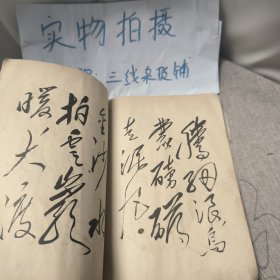 实物拍摄
三线杂货铺
騰細浪烏
蒙磅礴
走泥丸
金沙水
拍云
暖大渡